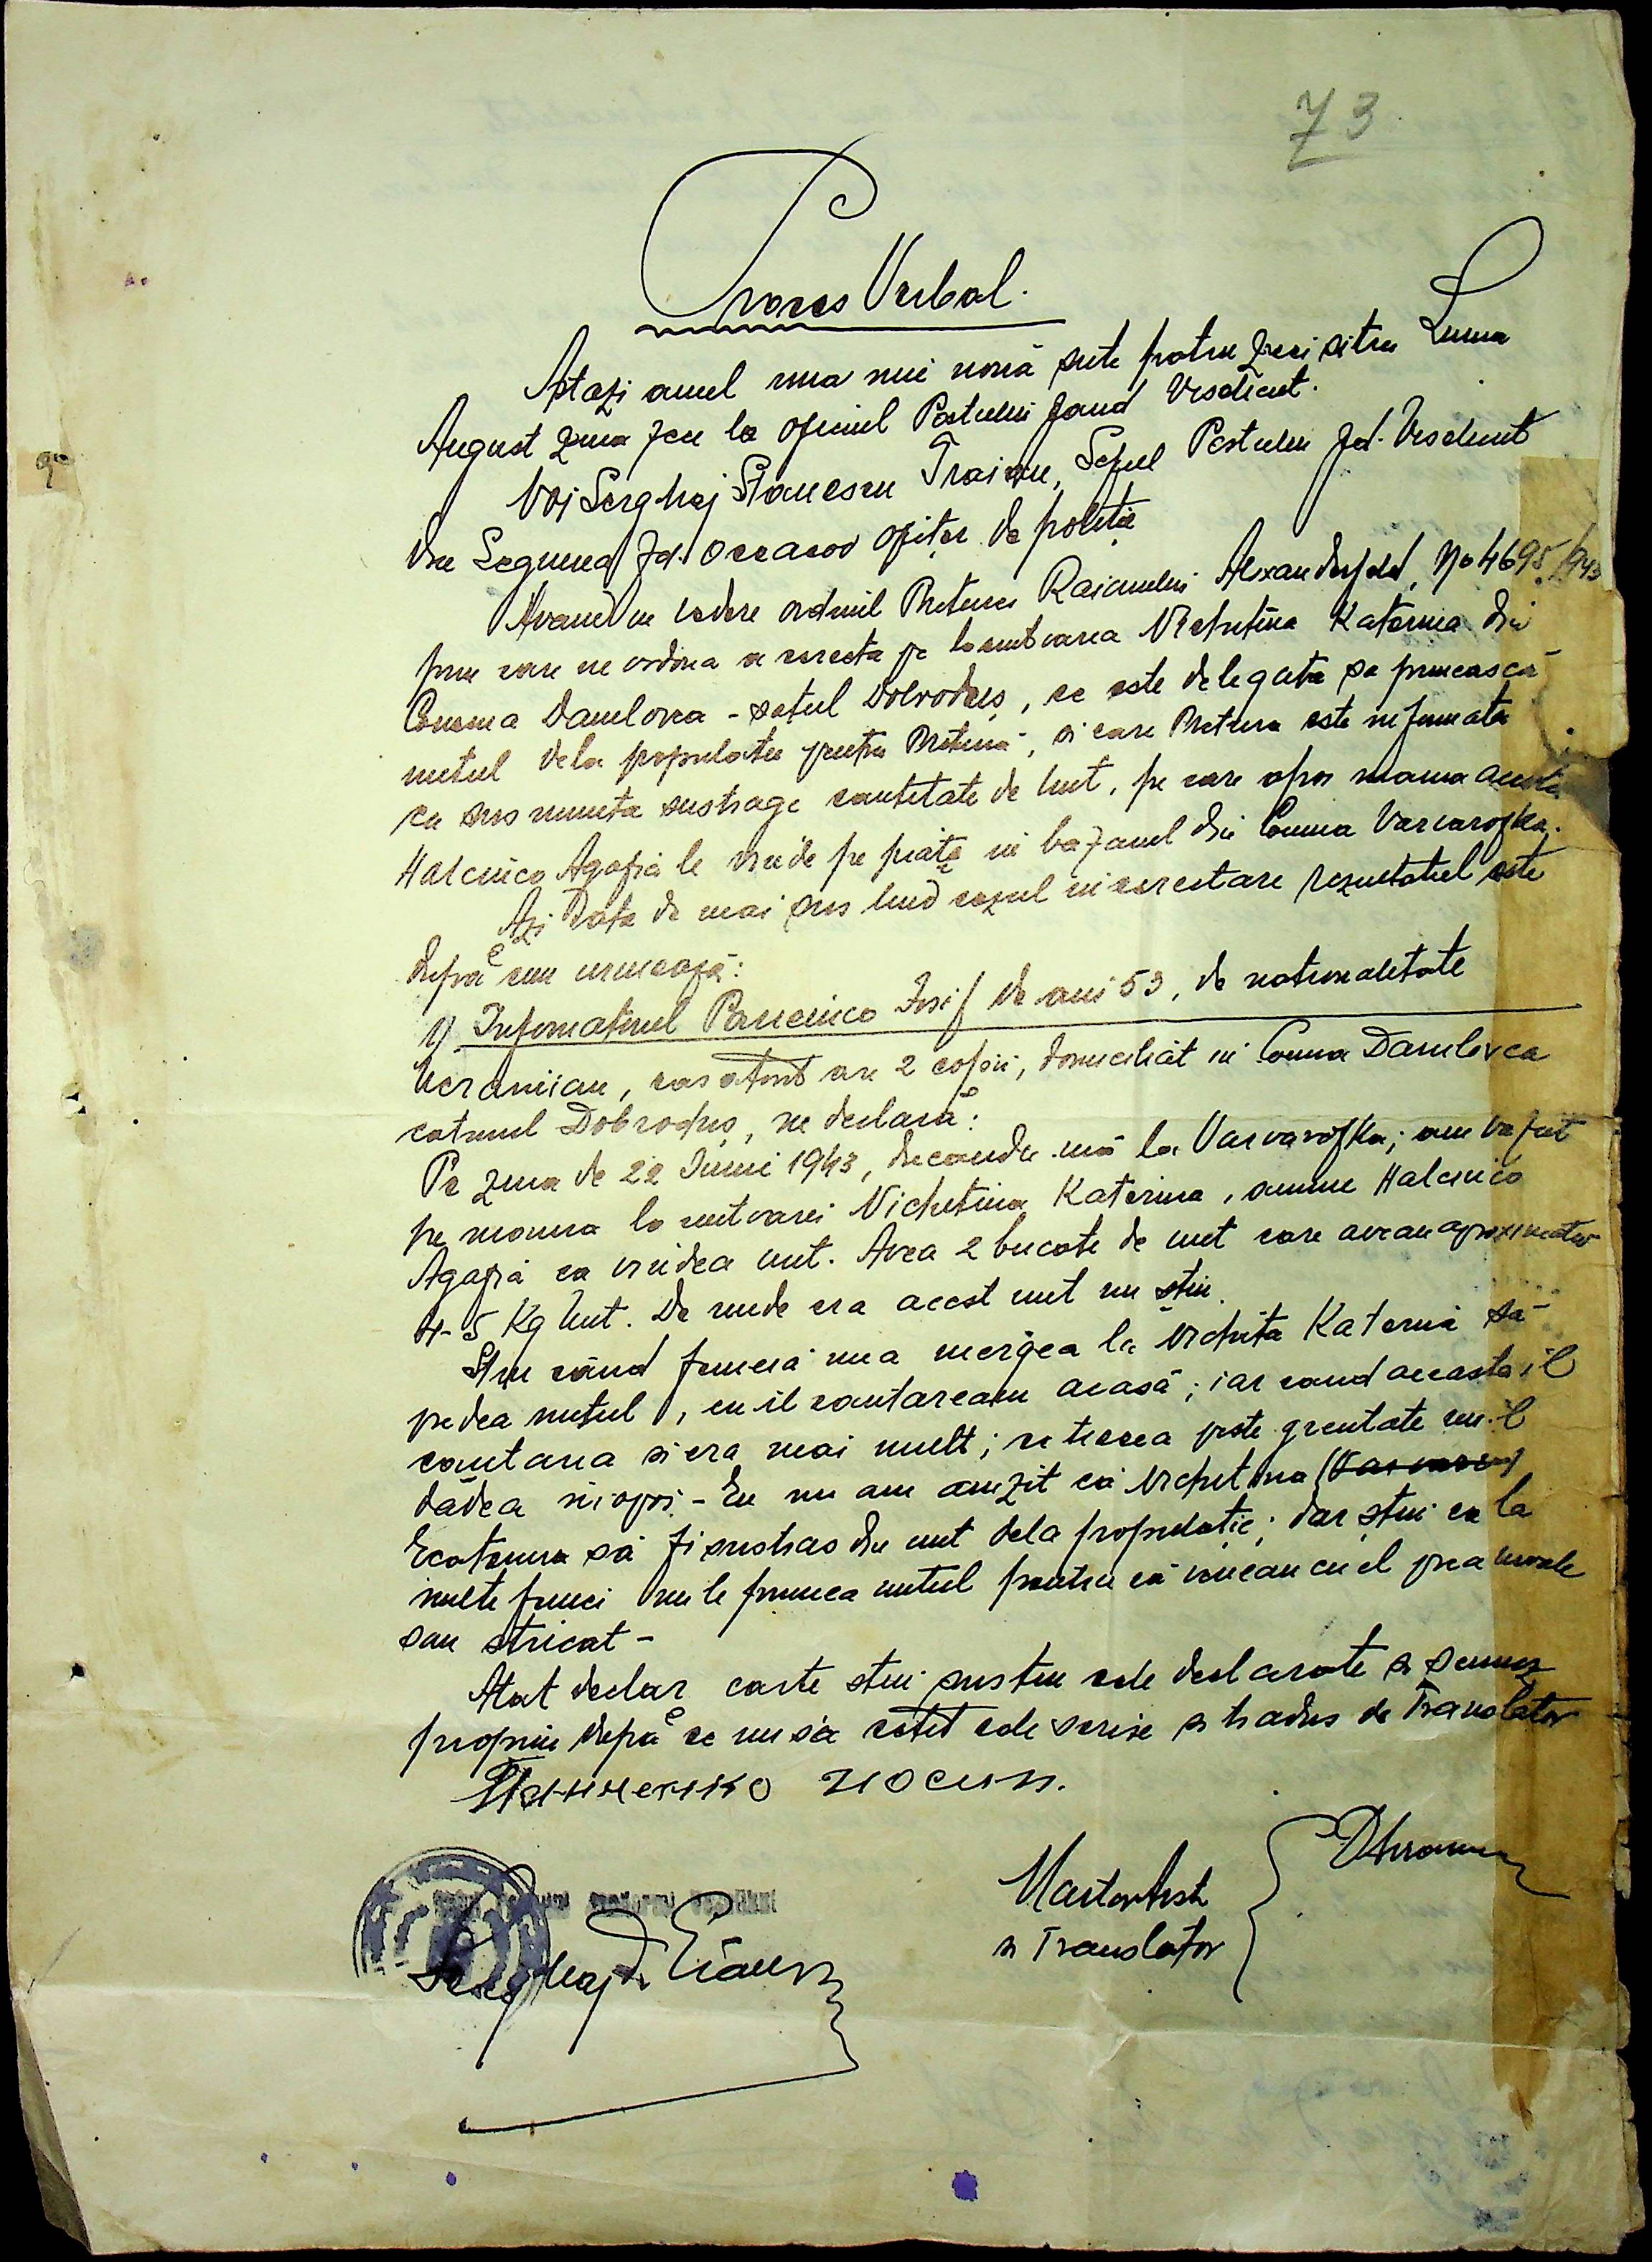 73
Proces Verbal.
Astazi anul una mie nouă sute patru zeci si trei Luna
August ziua zece la oficiul Postului Jand Veselinot.
Noi Serghaj Stanescu Traian, Seful Postului Jd. Veselinot
din Legiunea Jd. Oceacov ofițer de poliție
Avand in vedere ordinul Preturei Raionului Alexanderfeld, No 4695/943
prin care ne ordona a cerceta pe locuitoarea Nichitina Katerina din
Comuna Danilovca - satul Dobrodus, ce este delegata sa primească
untul dela populatie pentru Pretură, si care Pretura este informata
ca sus numita sustrage cantitate de Unt, pe care apoi mama acesteia
Halcenico Agafia le vinde pe piața in bazarul din Comuna Varvarofka.
Azi data de mai sus luând cazul in cercetare rezultatul este
după cum urmează:
1) Informatorul Pancenico Iosif de ani 53, de nationalitate
Ucrainian, casatorit are 2 copii, domiciliat in Comuna Danilovca
catunul Dobroduș, ne declară:
Pe ziua de 22 Iunie 1943, ducandu-mă la Varvarofka; am vazut
pe mama locuitoarei Nichitina Katerina, anume Halcenico
Agafia ca vindea unt. Avea 2 bucate de unt care aveau aproximativ
4-5 Kg Unt. De unde era acest unt nu știu.
Știu când femeia mea mergea la Nichita Katerina să
predea untul, eu il cantaream acasă; iar cand aceasta il
cantarea si era mai mult; ce trecea peste greutate nu-l
dădea inapoi - Eu nu am auzit că Nichitina
Ecaterina să fi sustras din unt dela populație; dar știu ca la
multe femei nu le primea untul pentru că veneau cu el prea moale
sau stricat -
Atat declar care le stiu sustin cele declarate si semnez
propriu după ce mi sa cetit cele scrise si tradus de Translator
Панченико Иосип.
Martor Asist
si Translator
Serg Maj Tr. Stănescu